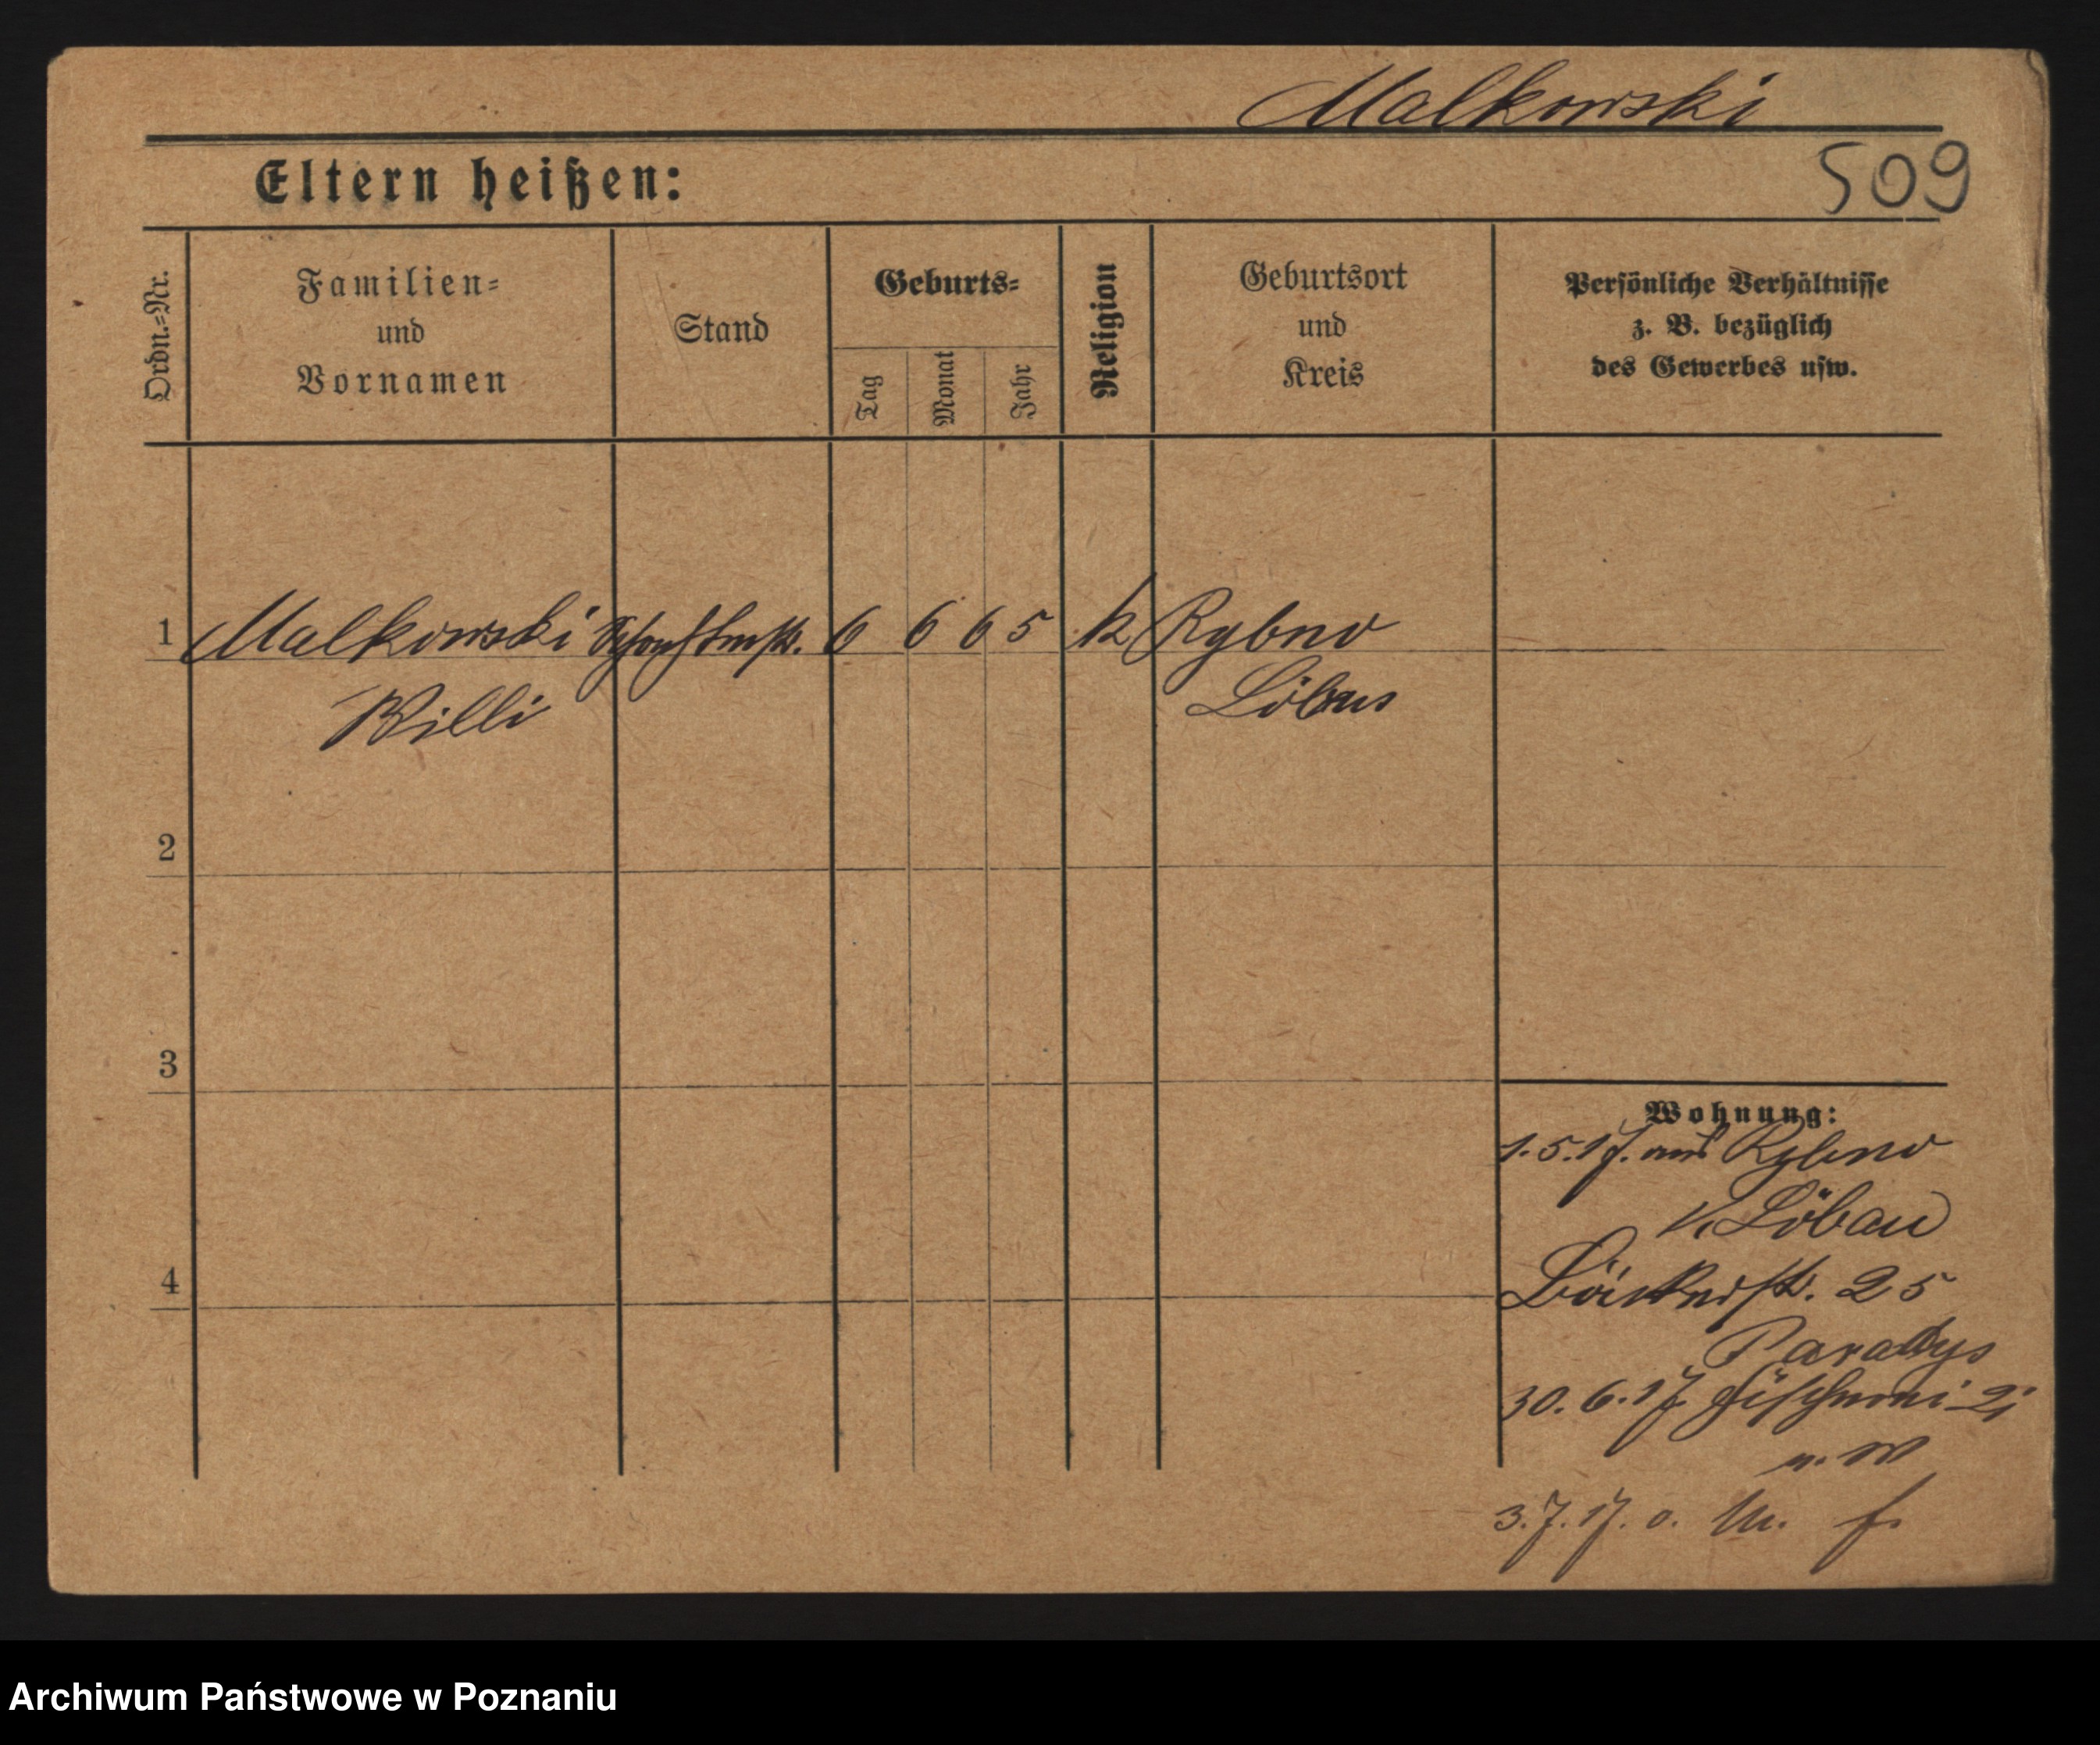 Malkowski
509
Eltern heißen:
Ordn.=Nr.
Familien=
und
Vornamen
Stand
Geburts=
Tag
Monat
Jahr
Religion
Geburtsort
und
Kreis
Persönliche Verhältnisse
z. B. bezüglich
des Gewerbes usw.
1 Malkowski 6 6 65 k Rybno
Willi Löbau
2
3
4
Wohnung:
1.5.17. aus Rybno
K. Löbau
Bäckerstr. 25
Paradys
30.6.17 Fischerei
3.7.17. o.
Archiwum Państwowe w Poznaniu